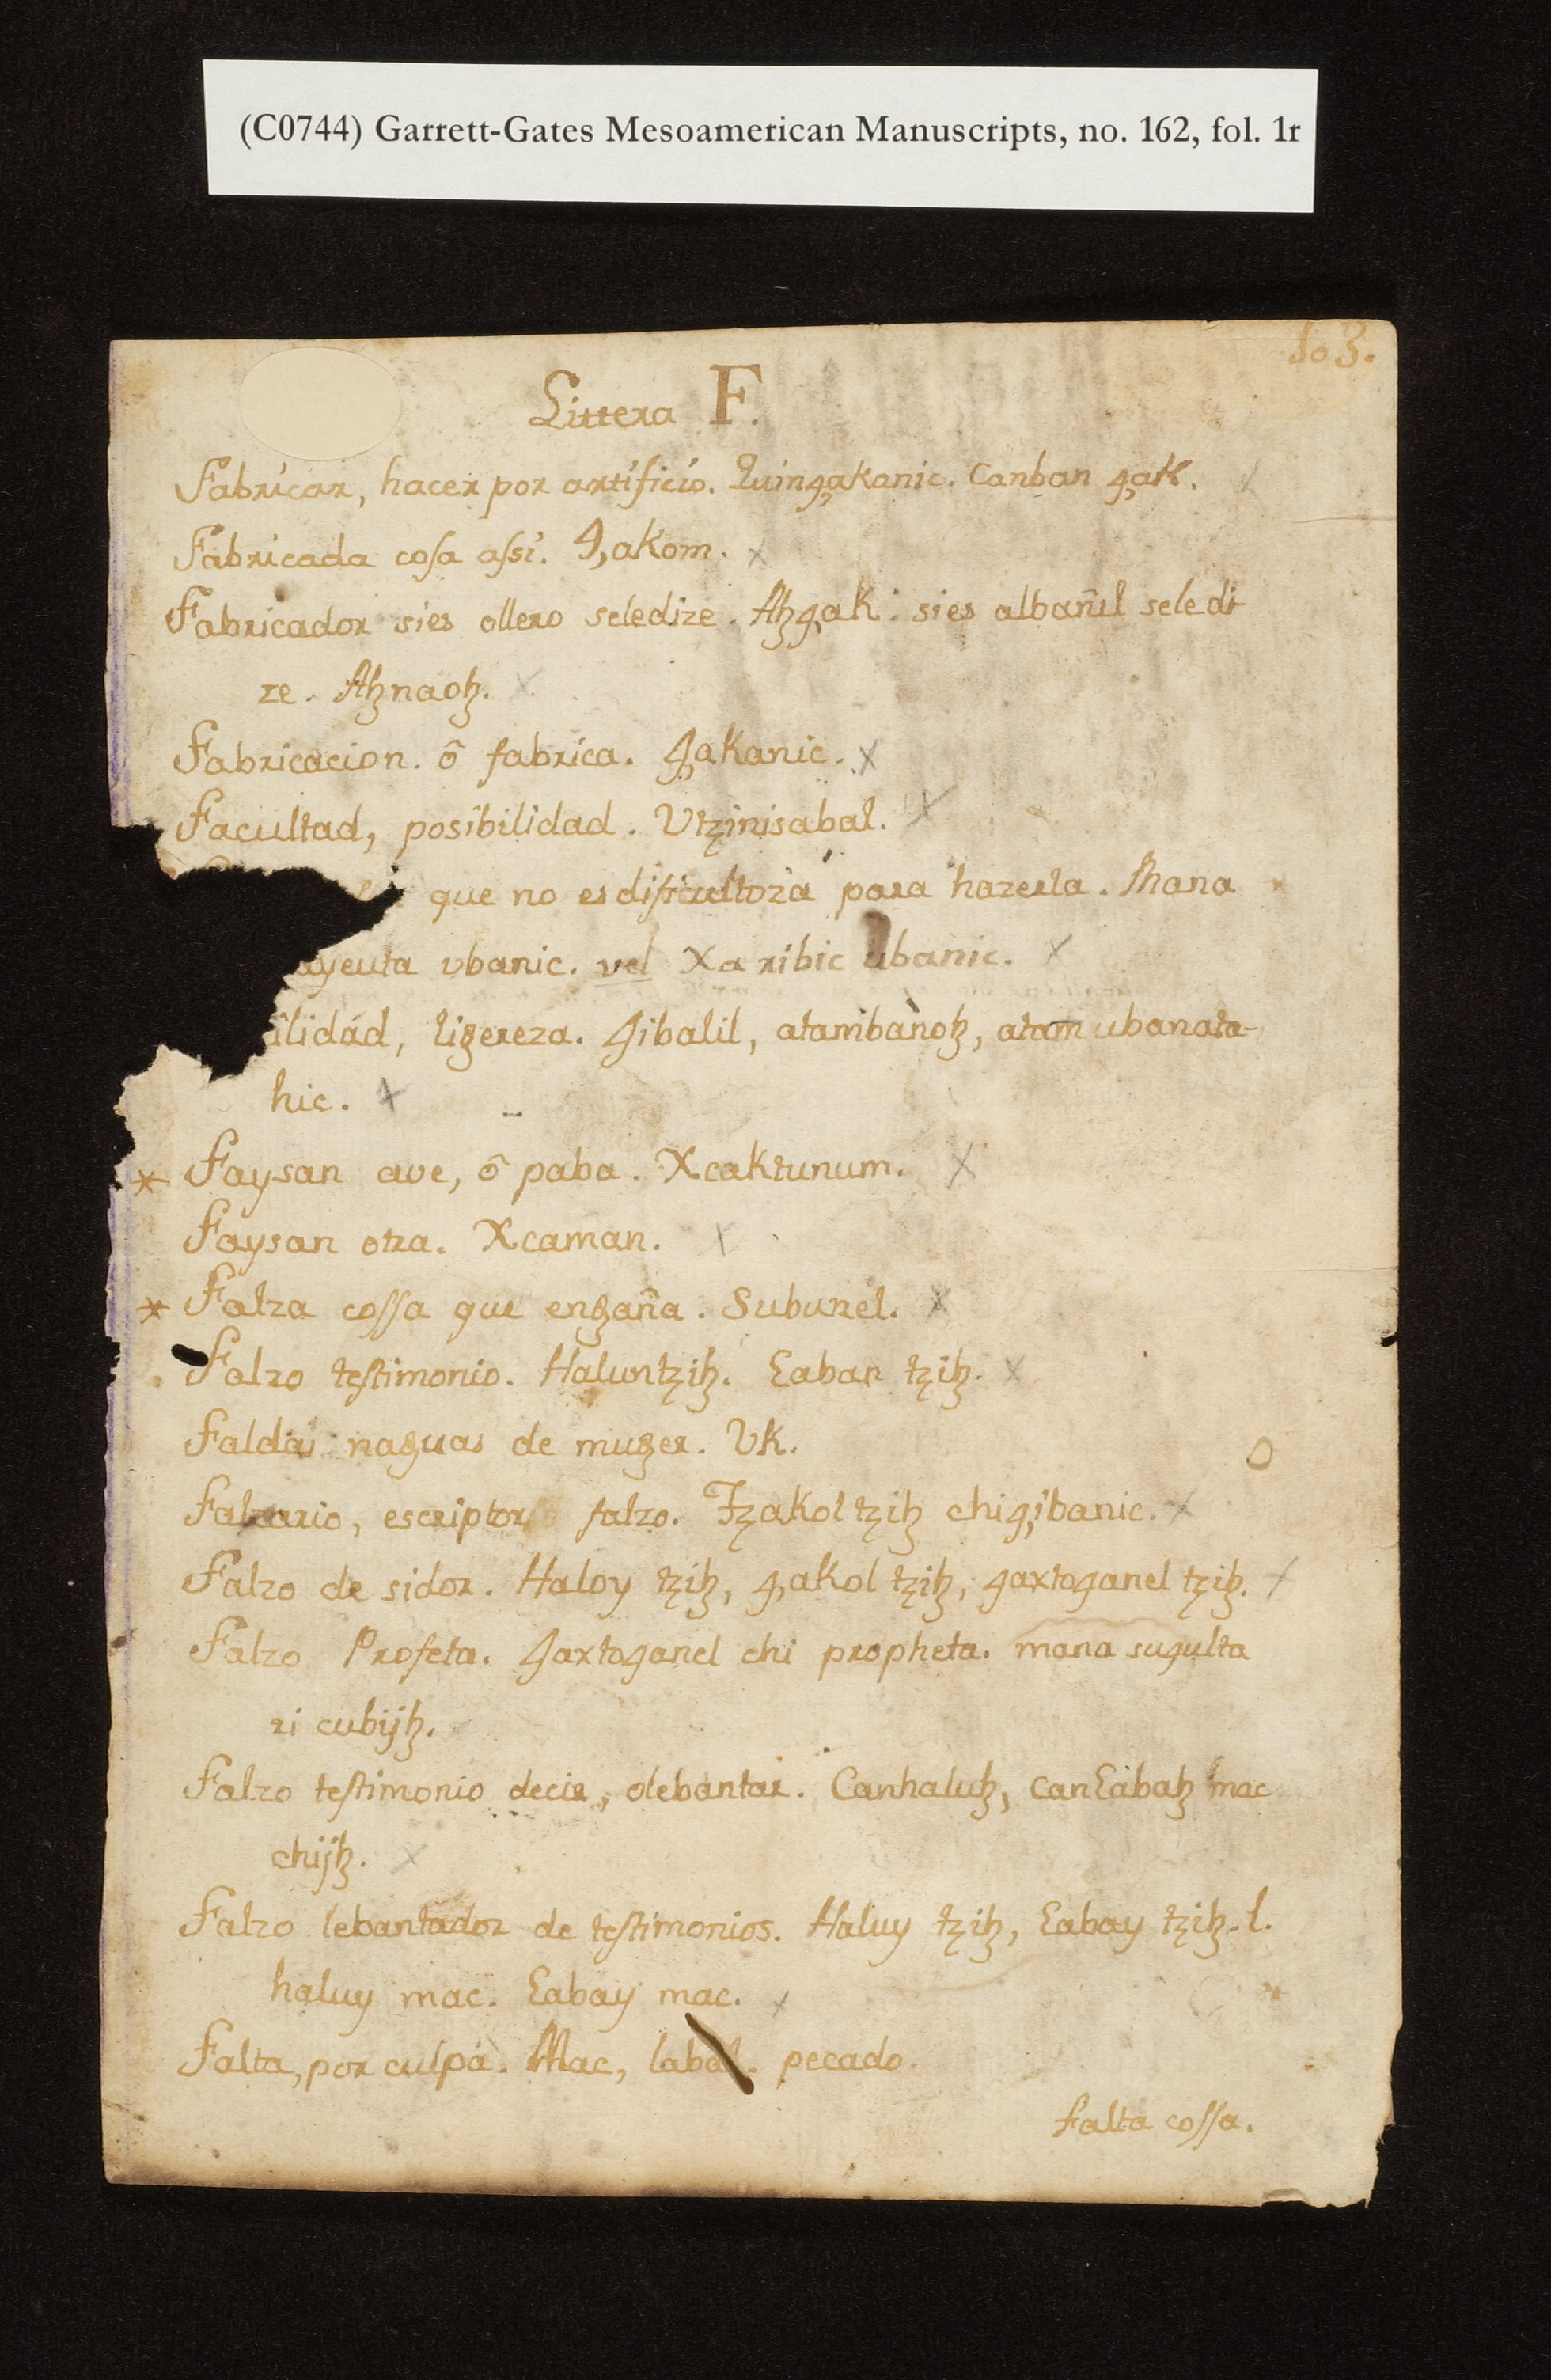 (C0744) Garrett-Gates Mesoamerican Manuscripts, no. 162, fol. 1r
103.
Littera F.
Fabricar, hacer por artificio. Quinꜯakanic. Canban ꜯak.
Fabricada cosa assi. Ꜯakom.
Fabricador sies ollero seledize. Ahꜯak: sies albañil seledi
ze. Ahnaoh.
Fabricacion. ô fabrica. Ꜯakanic.
Facultad, posibilidad. Vtzinisabal.
que no es dificultoza para hazerla. Mana
ayeuta vbanic. vel Xa ribic ubanic.
ilidád, ligereza. Ꜭibalil, atambanoh, atam ubanata-
hic.
* Faysan ave, ô paba. Xcaktunum.
Faysan otra. Xcaman.
* Falza cossa que engaña. Suburel.
Falzo testimonio. Haluntzih. Ɛaban tzih.
Faldas naguas de muger. Vk.
Falzario, escriptor falzo. Tzakol tzih chiꜯibanic.
Falzo de sidor. Haloy tzih, ꜯakol tzih, ꜭaxtoꜭanel tzih.
Falzo Profeta. Ꜭaxtoꜭanel chi propheta. mana suꜭulta
ri cubijh.
Falzo testimonio decir, olebantar. Canhaluh, canƐabah mac
chijh.
Falzo lebantador de testimonios. Haluy tzih, Ɛabay tzih. l.
haluy mac. Ɛabay mac.
Falta, por culpa. Mac, labal. pecado.
falta cossa.